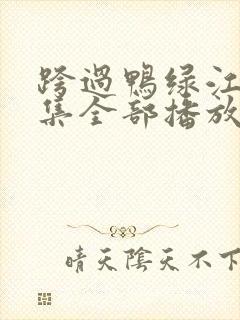 跨過鴨绿江
集全部播放
晴天陰天不下